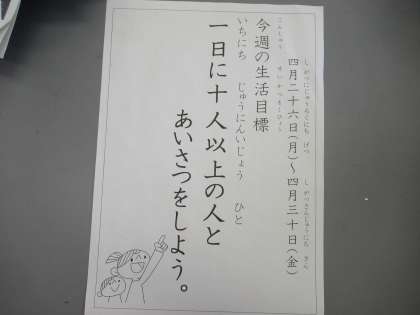 しがつにじゅうろくにち げつ しがつさんじゅうにち きん
四月二十六日(月)～四月三十日(金)
こんしゅう せいかつもくひょう
今週の生活目標
いちにち じゅうにんいじょう ひと
一日に十人以上の人と
あいさつをしよう。